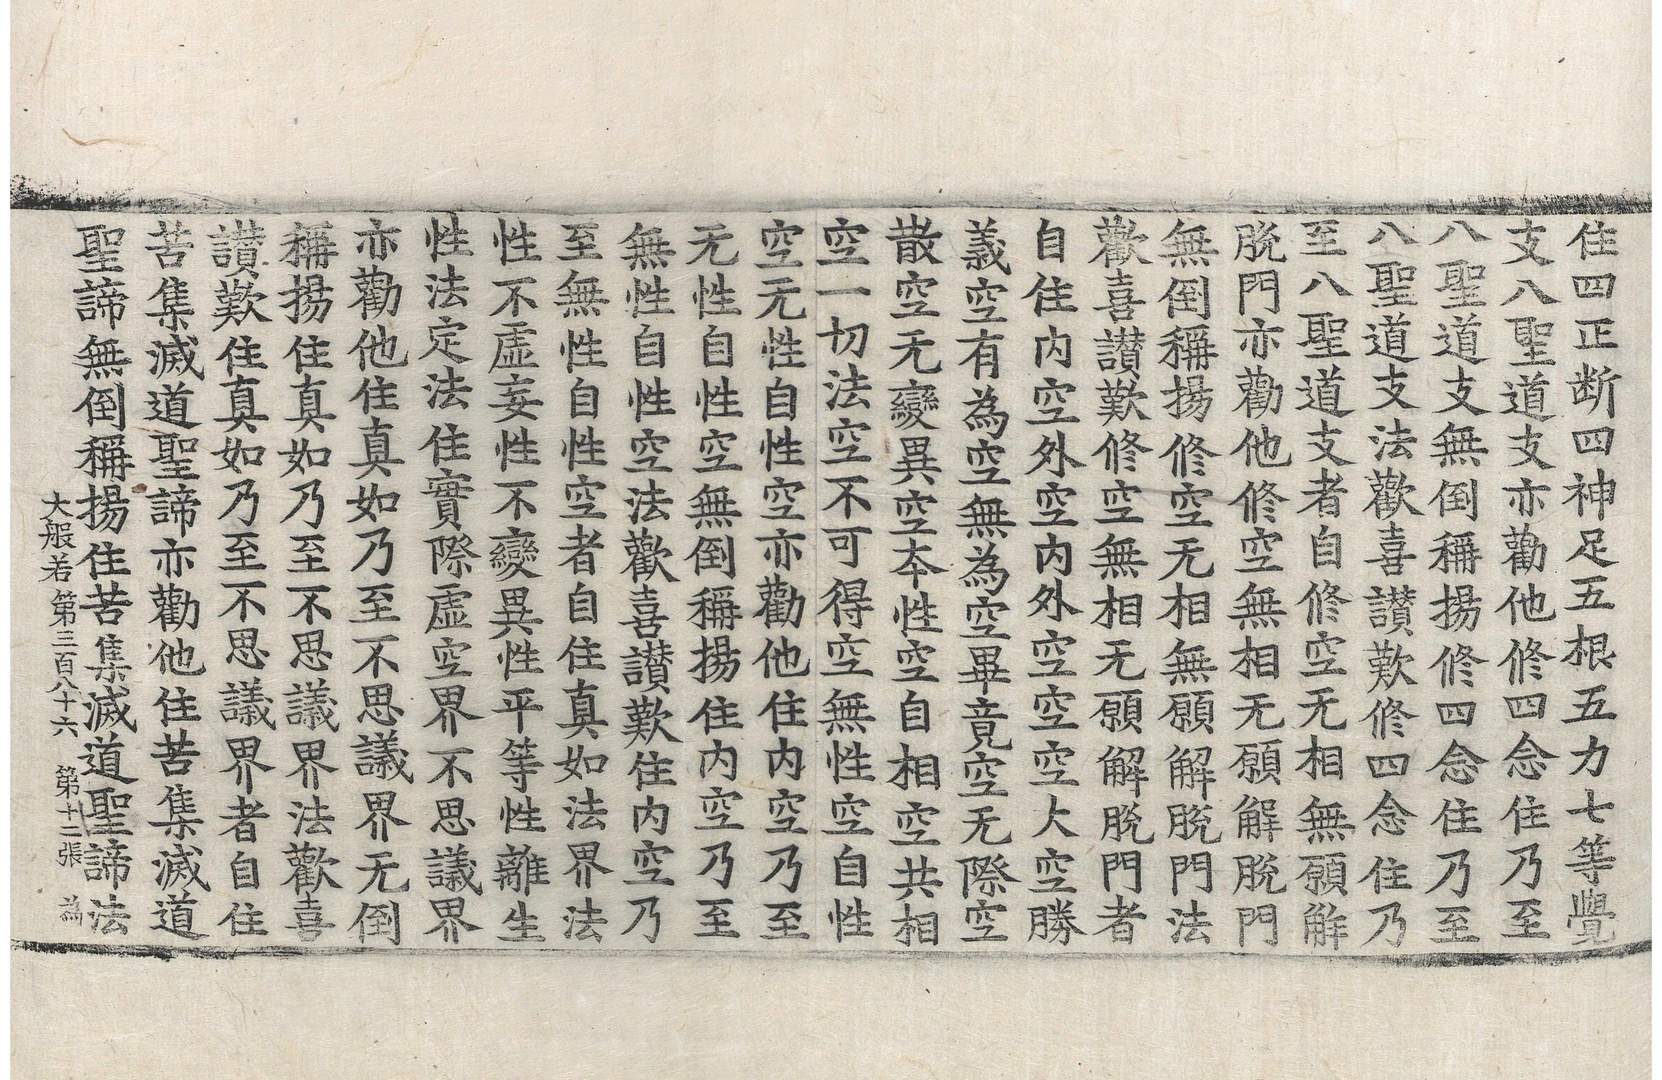 住四正断四神足五根五力七等覺
支八聖道支亦勸他修四念住乃至
八聖道支無倒稱揚修四念住乃至
八聖道支法歡喜讃歎修四念住乃
至八聖道支者自修空无相無願解
脫門亦勸他修空無相无願解脫門
無倒稱揚修空无相無願解脫門法
歡喜讃歎修空無相无願解脫門者
自住內空外空內外空空空大空勝
義空有為空無為空畢竟空无際空
散空无變異空夲性空自相空共相
空一切法空不可得空無性空自性
空无性自性空亦勸他住內空乃至
无性自性空無倒稱揚住內空乃至
無性自性空法歡喜讃歎住內空乃
至無性自性空者自住真如法界法
性不虛妄性不變異性平等性離生
性法定法住實際虛空界不思議界
亦勸他住真如乃至不思議界无倒
稱揚住真如乃至不思議界法歡喜
讃歎住真如乃至不思議界者自住
苦集滅道聖諦亦勸他住苦集滅道
聖諦無倒稱揚住苦集滅道聖諦法
大般若第三百八十六 第十二張 為